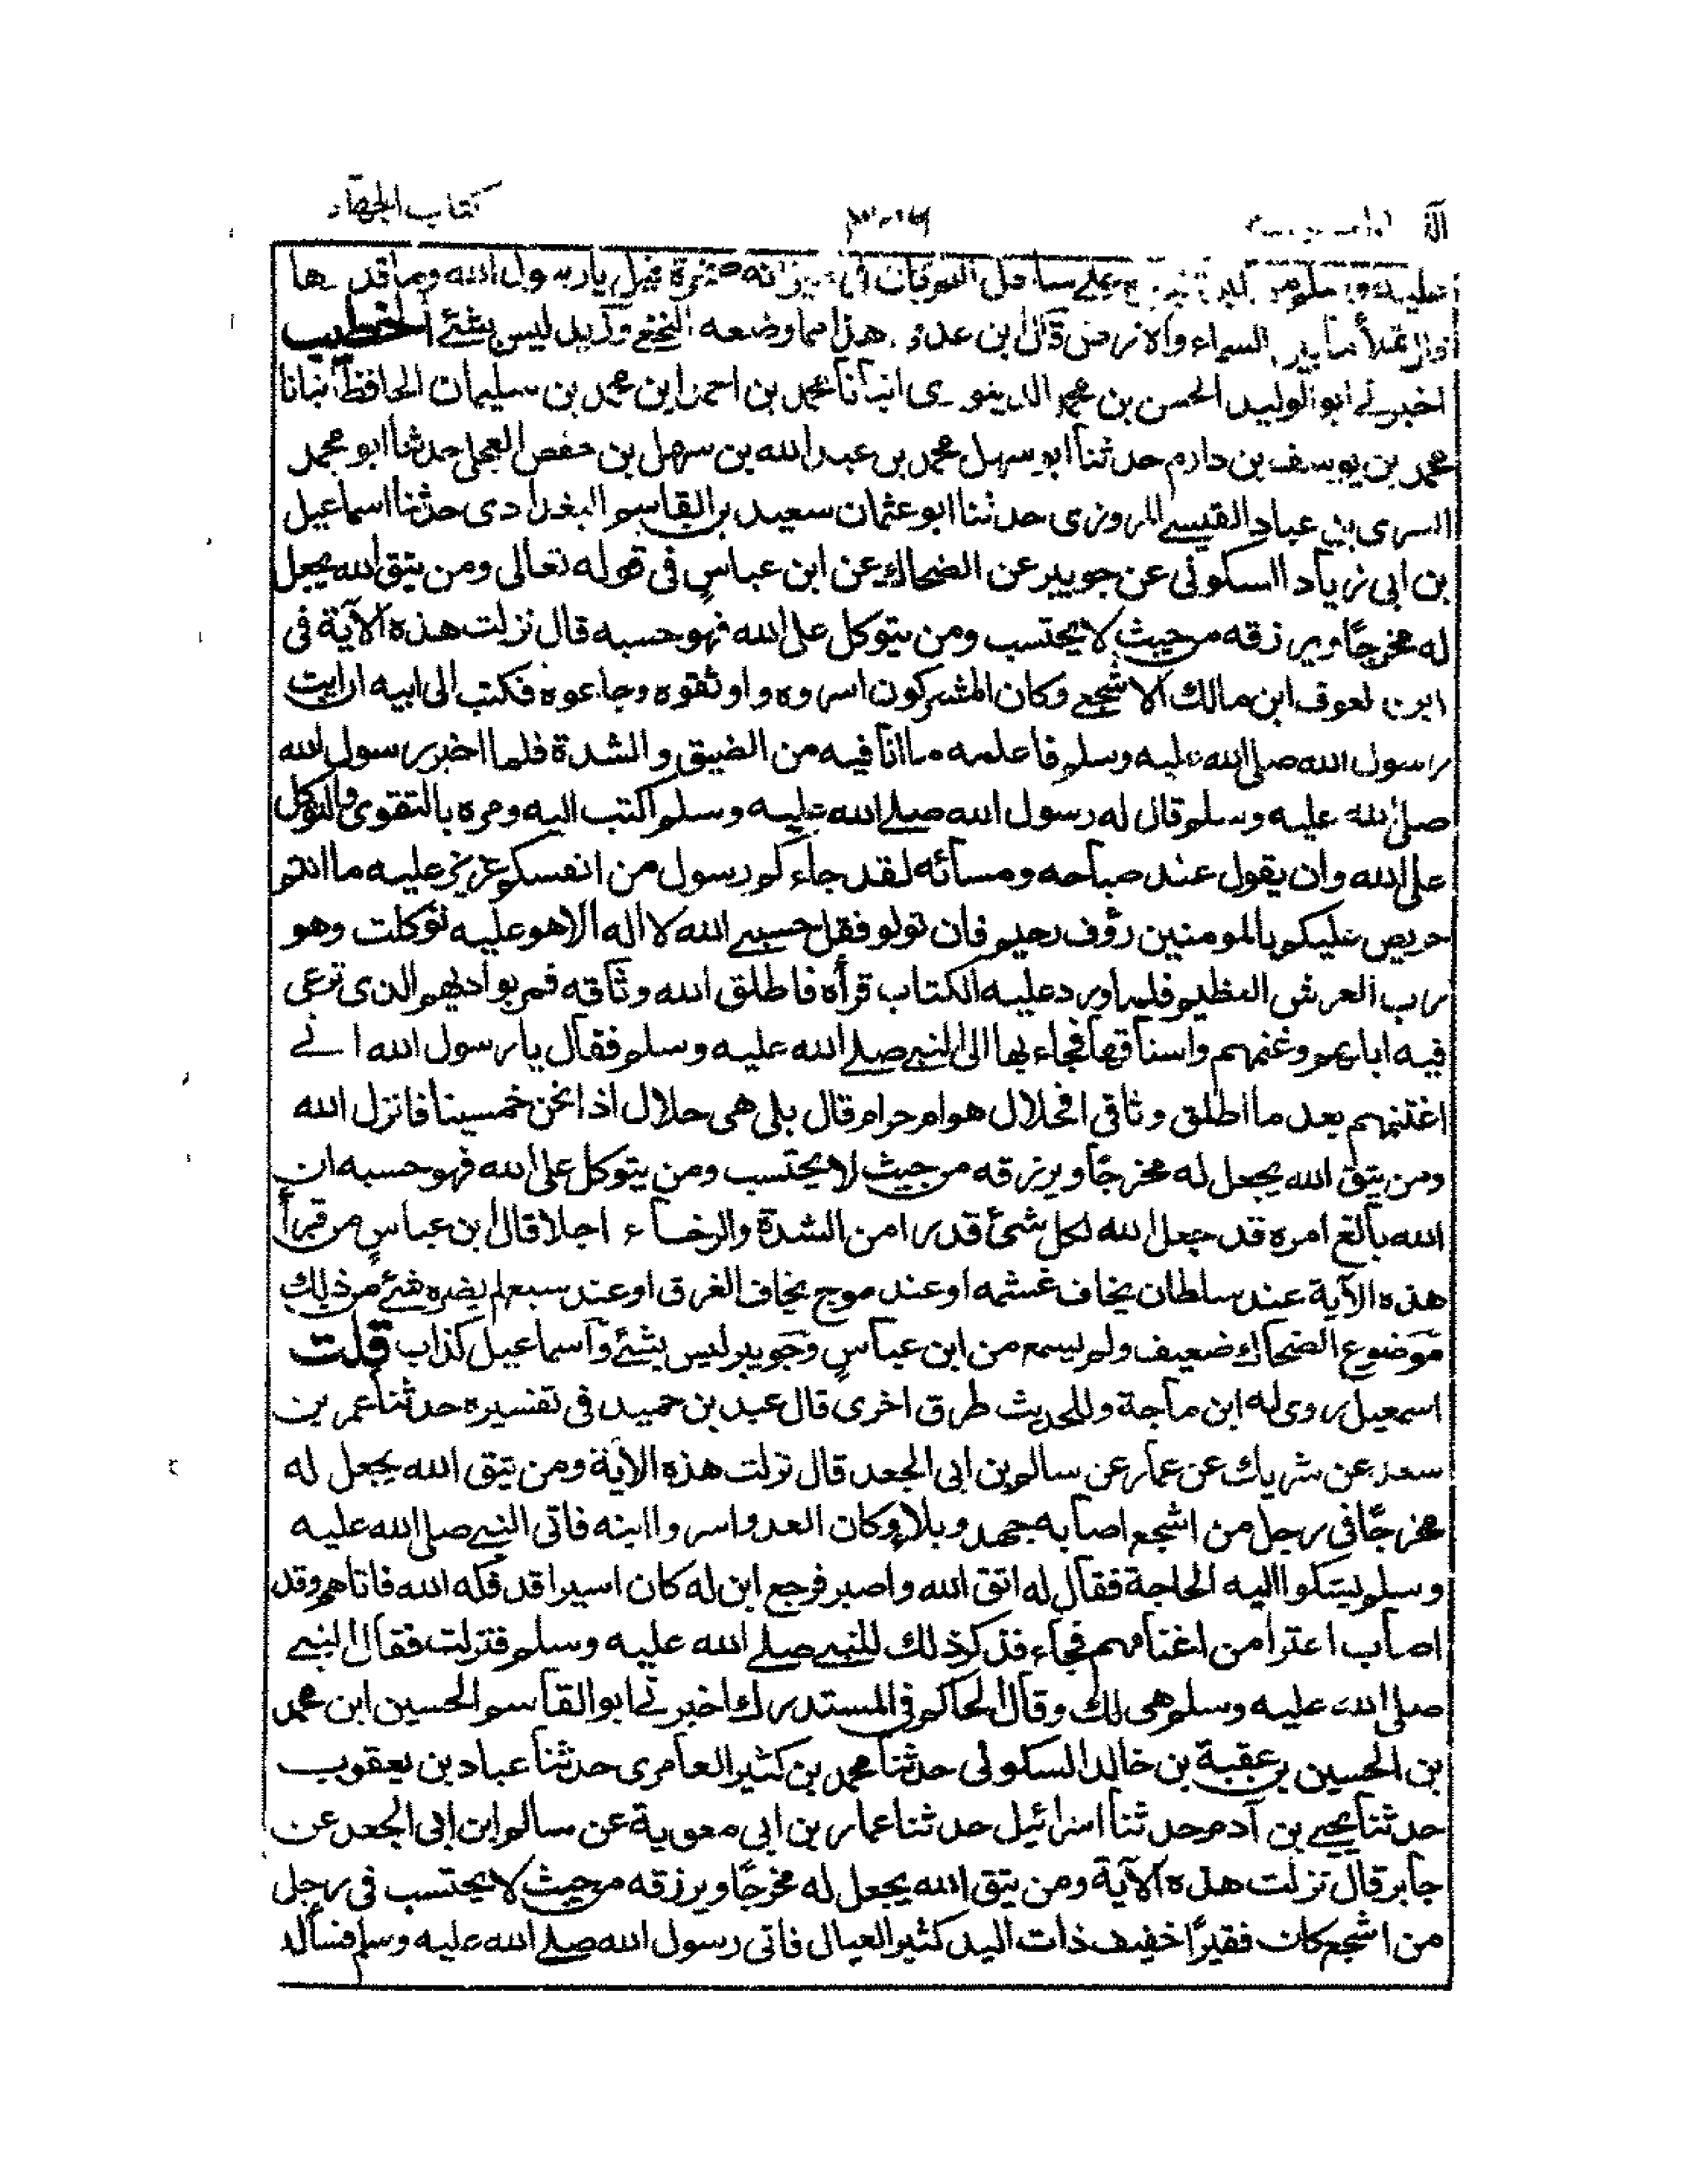 كتاب الجهاد
عليه وسلم من كبر تكبيرة على ساحل البحر كان فى ميزانه صخرة قيل يا رسول الله وما قدرها
قال تملأ ما بين السماء والارض قال ابن عدى هذا مما وضعه النخعى وزيد ليس بشئ الخطيب
اخبرنى ابو الوليد الحسن بن محمد الدينورى انبأنا محمد بن احمد ابن محمد بن سليمان الحافظ انبانا
محمد بن يوسف بن دارم حدثنا ابو سهل محمد بن عبد الله بن سهل بن حفص العجلى حدثنا ابو محمد
السرى بن عباد القيسى المروزى حدثنا ابو عثمان سعيد بن القاسم البغدادى حدثنا اسماعيل
بن ابى زياد السكونى عن جويبر عن الضحاك عن ابن عباس فى قوله تعالى ومن يتق الله يجعل
له مخرجًا ويرزقه من حيث لا يحتسب ومن يتوكل على الله فهو حسبه قال نزلت هذه الآية فى
ابن لعوف ابن مالك الاشجعى وكان المشركون اسروه واوثقوه وجاعوه فكتب الى ابيه ان ايت
رسول الله صلى الله عليه وسلم فاعلمه ما انا فيه من الضيق والشدة فلما اخبر رسول الله
صلى الله عليه وسلم قال له رسول الله صلى الله عليه وسلم اكتب اليه ومره بالتقوى والتوكل
على الله وان يقول عند صباحه ومسائه لقد جاءكم رسول من انفسكم عزيز عليه ما انتم
حريص عليكم بالمومنين رؤف رحيم فان تولو فقل حسبى الله لا اله الا هو عليه توكلت وهو
رب العرش العظيم فلما ورد عليه الكتاب قرأه فاطلق الله وثاقه فمر بواديهم الذى ترعى
فيه ابلهم وغنمهم واستاقها فجاء بها الى النبى صلى الله عليه وسلم فقال يا رسول الله انى
اغتنمتهم بعد ما اطلق وثاقى افحلال هو ام حرام قال بلى هى حلال اذا نحن خمسينا فانزل الله
ومن يتق الله يجعل له مخرجًا ويرزقه من حيث لا يحتسب ومن يتوكل على الله فهو حسبه ان
الله بالغ امره قد جعل الله لكل شئ قدرا من الشدة والرخاء اجلا قال ابن عباس من قرأ
هذه الآية عند سلطان يخاف غشمه او عند موج يخاف الغرق او عند سبع لم يضره شئ من ذلك
موضوع الضحاك ضعيف ولم يسمع من ابن عباس وجويبر ليس بشئ واسماعيل كذاب قلت
اسمعيل روى له ابن ماجة وللحديث طرق اخرى قال عبد بن حميد فى تفسيره حدثنا عمر بن
سعد عن شريك عن عمار عن سالم بن ابى الجعد قال نزلت هذه الآية ومن يتق الله يجعل له
مخرجًا فى رجل من اشجع اصابه جهد وبلاء وكان العدو اسروا ابنه فاتى النبى صلى الله عليه
وسلم يشكوا اليه الحاجة فقال له اتق الله واصبر فرجع ابن له كان اسيرا قد فكه الله فاتاهم وقد
اصاب اعنزا من اغنامهم فجاء فذكر ذلك للنبى صلى الله عليه وسلم فنزلت فقال النبى
صلى الله عليه وسلم هى لك وقال الحاكم فى المستدرك اخبرنى ابو القاسم الحسين ابن محمد
بن الحسين بن عقبة بن خالد السكونى حدثنا محمد بن كثير العامرى حدثنا عباد بن يعقوب
حدثنا يحيى بن آدم حدثنا اسرائيل حدثنا عمار بن ابى معوية عن سالم ابن ابى الجعد عن
جابر قال نزلت هذه الآية ومن يتق الله يجعل له مخرجًا ويرزقه من حيث لا يحتسب فى رجل
من اشجع كان فقيرًا خفيف ذات اليد كثير العيال فاتى رسول الله صلى الله عليه وسلم فسأله